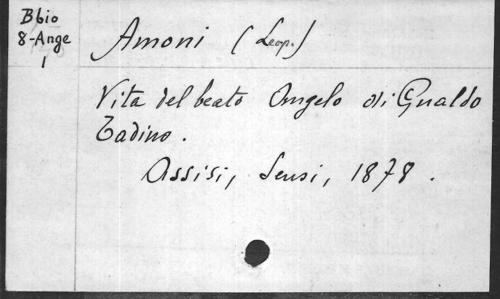 Bbio
8-Ange
1
Amoni (Leop.)
Vita del beato Angelo di Gualdo
Tadino.
Assisi, Sensi, 1878.